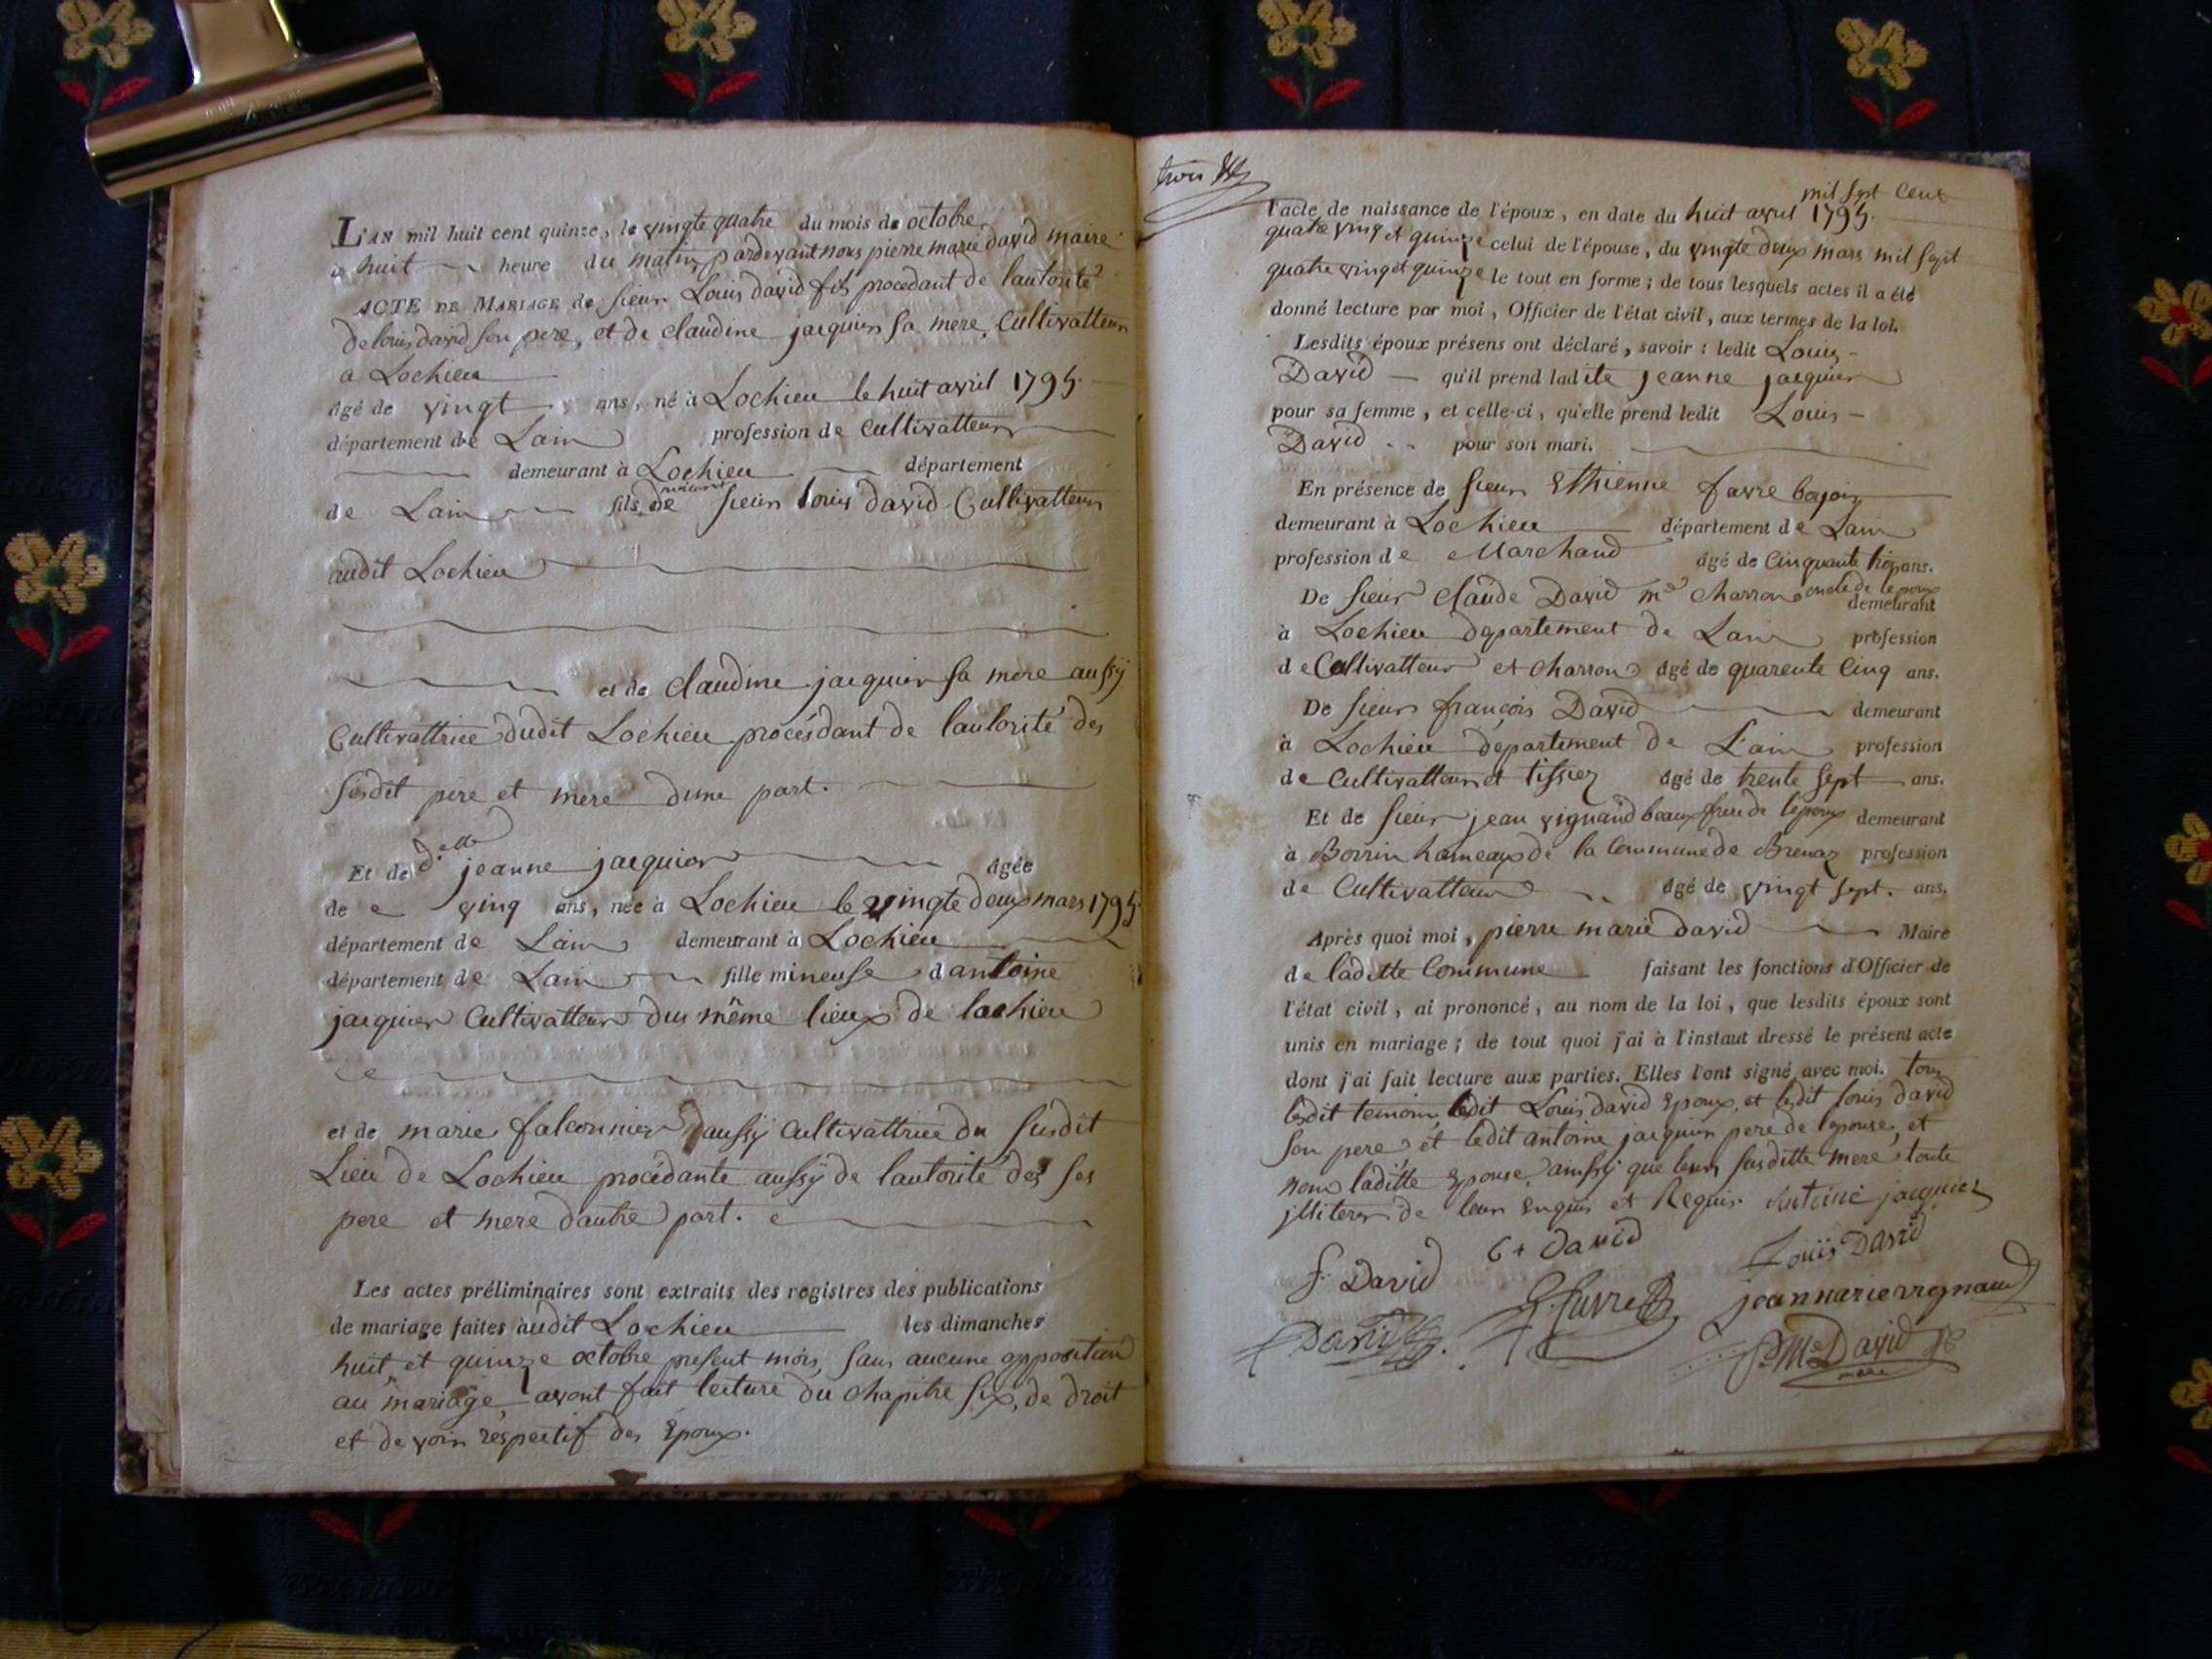 L'AN mil huit cent quinze, le vingte quatre du mois de octobre
à huit heure du matin pardevant nous pierre marie david maire
ACTE DE MARIAGE de sieur Louis david fils procedant de lautorité
de louis david son pere, et de claudine jacquier sa mere, Cultivatteur
a Lochieu
âgé de vingt ans, né à Lochieu le huit avril 1795.
département de Lain profession de Cultivatteur
demeurant à Lochieu département
de Lain fils de sieur Louis david Cultivatteur
audit Lochieu
et de Claudine jacquier sa mere aussy
Cultivattrice dudit Lochieu procésdant de lautorité des
sesdit pere et mere dune part.
Et de d.elle jeanne jacquier âgée
de ving ans, née à Lochieu le vingte deux mars 1795.
département de Lain demeurant à Lochieu
département de Lain fille mineuse dantoine
jacquier Cultivatteur du même lieux de lochieu
et de marie falconnier aussy Cultivattrice du susdit
Lieu de Lochieu procédante aussy de lautorité des ses
pere et mere dautre part.
Les actes préliminaires sont extraits des registres des publications
de mariage faites audit Lochieu les dimanches
huit et quinze octobre present mois, sans aucune opposition
au mariage, avont fait lecture du Chapitre six, de droit
et devoir respectif des Epoux.
trois
mil sept Cent
l'acte de naissance de l'époux, en date du huit avril 1795.
quatre ving et quinze celui de l'épouse, du vingte deux mars mil sept
quatre vingt quinze le tout en forme ; de tous lesquels actes il a été
donné lecture par moi, Officier de l'état civil, aux termes de la loi.
Lesdits époux présens ont déclaré, savoir : ledit Louis
David qu'il prend ladite jeanne jacquier
pour sa femme, et celle-ci, qu'elle prend ledit Louis
David pour son mari.
En présence de sieur Ethienne favre
demeurant à Lochieu département de Lain
profession de Marchand âgé de Cinquante trois ans.
De sieur Claude David md Charron oncle de lepoux demeurant
à Lochieu departement de Lain profession
de Cultivatteur et Charron âgé de quarente Cinq ans.
De sieur françois David demeurant
à Lochieu departement de Lain profession
de Cultivatteur et tissier âgé de trente sept ans.
Et de sieur jean vignand beaux frere de lepoux demeurant
à Borrin hameaux de la Commune de Brenaz profession
de Cultivatteur âgé de vingt sept. ans.
Après quoi moi, pierre marie david Maire
de laditte Commune faisant les fonctions d'Officier de
l'état civil, ai prononcé, au nom de la loi, que lesdits époux sont
unis en mariage ; de tout quoi j'ai à l'instaut dressé le présent acte
dont j'ai fait lecture aux parties. Elles l'ont signé avec moi. tous
lesdit temoin, ledit Louis david Epoux, et ledit louis david
son pere, et ledit antoine jacquier pere de lepouse, et
non laditte Epouse, ainssy que leur susditte mere toute
jlliterer de leur Enquis et Requis. Antoine jacquier
f. David C+ david Louis David
David favre jean marie vignand
PMe David
maire